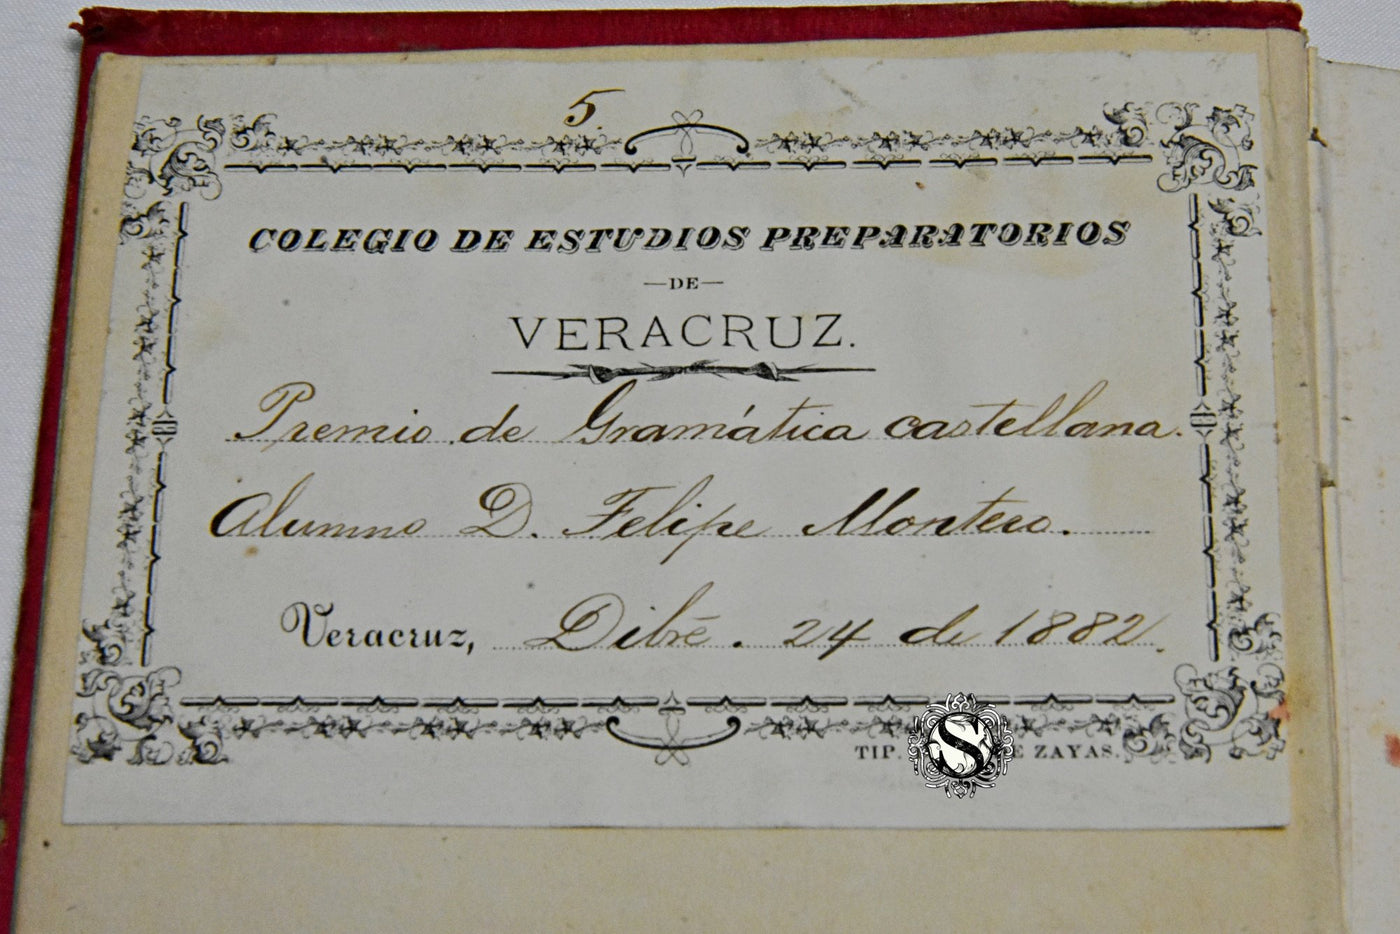 5.
COLEGIO DE ESTUDIOS PREPARATORIOS
—DE—
VERACRUZ.
Premio de Gramática castellana.
Alumno D. Felipe Montero.
Veracruz, Dibrē. 24 de 1882.
TIP. ZAYAS.
S